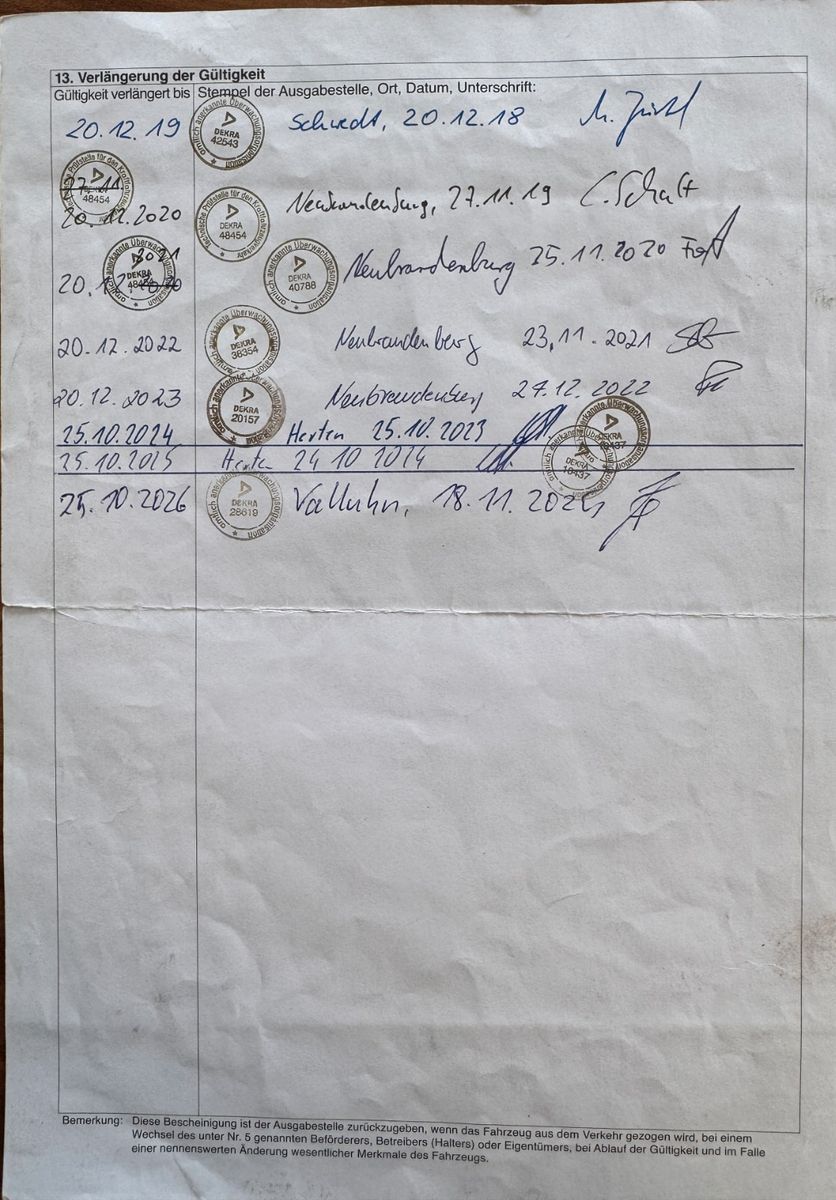 13. Verlängerung der Gültigkeit
Gültigkeit verlängert bis Stempel der Ausgabestelle, Ort, Datum, Unterschrift:
20.12.19 amtlich anerkannte Überwachungsorganisation DEKRA 42543 Schwedt, 20.12.18
27.11. 48454
20.12.2020 Technische Prüfstelle für den Kraftfahrzeugverkehr DEKRA 48454 Neubrandenburg, 27.11.19 C. Schalt
2021
20.12.2020 DEKRA amtlich anerkannte Überwachungsorganisation DEKRA 40788 Neubrandenburg 25.11.2020
20.12.2022 amtlich anerkannte Überwachungsorganisation DEKRA 38354 Neubrandenburg 23.11.2021
20.12.2023 amtlich anerkannte Überwachungsorganisation DEKRA 20157 Neubrandenburg 27.12.2022
25.10.2024 Herten 25.10.2023 amtlich anerkannte Überwachungsorganisation DEKRA
25.10.2025 Herten 24 10 2024 DEKRA 10437
25.10.2026 amtlich anerkannte Überwachungsorganisation DEKRA 28619 Valluhn, 18.11.
Bemerkung: Diese Bescheinigung ist der Ausgabestelle zurückzugeben, wenn das Fahrzeug aus dem Verkehr gezogen wird, bei einem
Wechsel des unter Nr. 5 genannten Beförderers, Betreibers (Halters) oder Eigentümers, bei Ablauf der Gültigkeit und im Falle
einer nennenswerten Änderung wesentlicher Merkmale des Fahrzeugs.